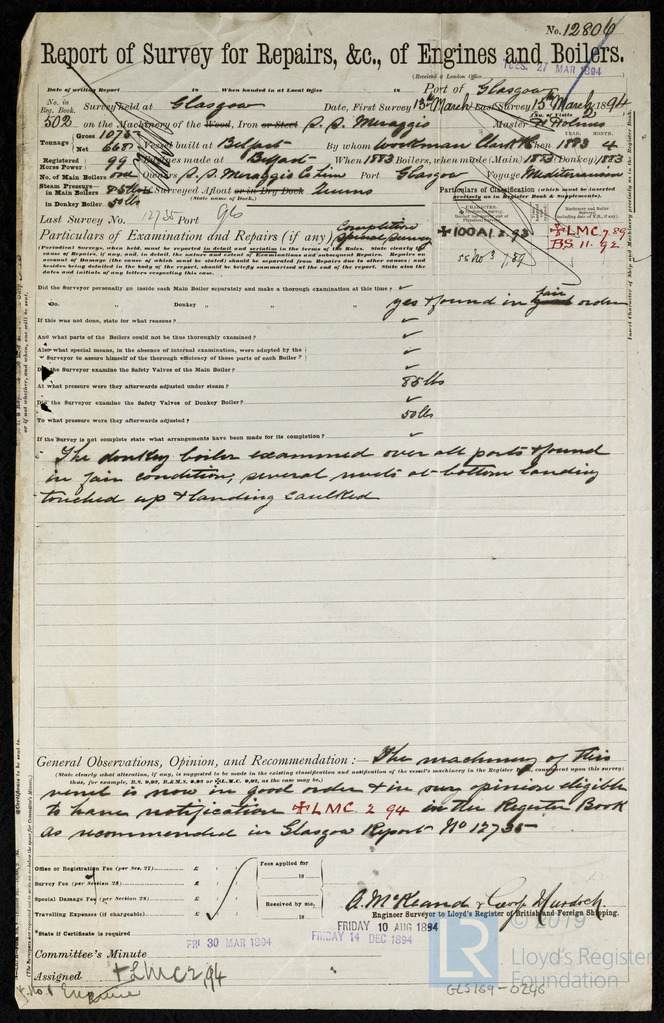 No. 12806
Report of Survey for Repairs, &c., of Engines and Boilers.
(Received at London Office
TUES. 27 MAR 1894
Date of writing Report 18 When handed in at Local Office 18 Port of Glasgow
No. in Reg. Book. Survey held at Glasgow Date, First Survey 13th March Last Survey 15th March 1894
(No. of Visits 2)
502 on the Machinery of the Wood, Iron or Steel S.S. Meraggio Master H Holmes
Tonnage Gross 1075 Net 668 Vessel built at Belfast By whom Workman Clark & Co When 1883 4
YEAR. MONTH.
Registered Horse Power 99 Engines made at Belfast When 1883 Boilers, when made (Main) 1883 (Donkey) 1883
No. of Main Boilers one Owners S.S. Meraggio Co Lim Port Glasgow Voyage Mediterranean
Steam Pressure in Main Boilers 85 lbs Surveyed Afloat or in Dry Dock
(State name of Dock.)
in Donkey Boiler 50 lbs
Particulars of Classification (which must be inserted precisely as in Register Book & Supplements).
Last Survey No. 12735 Port Gls
✠100A1. 2.93
✠LMC. 7.89
BS 11.92
ss No 3 7/89
Particulars of Examination and Repairs (if any) Completion Special Survey
(Periodical Surveys, when held, must be reported in detail and seriatim in the terms of the Rules. State clearly the
cause of Repairs, if any, and, in detail, the nature and extent of Examinations and subsequent Repairs. Repairs on
account of Damage (the cause of which must be stated) should be separated from Repairs due to other causes; and
besides being detailed in the body of the report, should be briefly summarised at the end of the report. State also the
dates and initials of any letters respecting this case.)
Did the Surveyor personally go inside each Main Boiler separately and make a thorough examination at this time? ✓
Do. Donkey " " " yes & found in fair good order
If this was not done, state for what reasons? ✓
And what parts of the Boilers could not be thus thoroughly examined? ✓
Also what special means, in the absence of internal examination, were adopted by the
Surveyor to assure himself of the thorough efficiency of those parts of each Boiler? ✓
Did the Surveyor examine the Safety Valves of the Main Boiler? ✓
At what pressure were they afterwards adjusted under steam? 85 lbs
Did the Surveyor examine the Safety Valves of Donkey Boiler? ✓
To what pressure were they afterwards adjusted? 50 lbs
If the Survey is not complete state what arrangements have been made for its completion? ✓
The donkey boiler examined over all parts & found
in fair condition, several rivets at bottom landing
touched up & landing caulked
General Observations, Opinion, and Recommendation:— The machinery of this
(State clearly what alteration, if any, is suggested to be made in the existing classification and notification of the vessel's machinery in the Register Book, consequent upon this survey;
thus, for example, B.S. 9,92, B.&M.S. 9,92 or ✠L.M.C. 9,92, as the case may be.)
vessel is now in good order & in our opinion eligible
to have notification ✠LMC. 2 94 in the Register Book
as recommended in Glasgow Report No 12735
Office or Registration Fee (per Sec. 27) £ : :
Fees applied for
18
Survey Fee (per Section 28) £ : :
Special Damage Fee (per Section 28) £ : :
Received by me,
18
Travelling Expenses (if chargeable) £ : :
A. McKeand & Murdoch
Engineer Surveyor to Lloyd's Register of British and Foreign Shipping.
*State if Certificate is required
FRIDAY 10 AUG 1894
FRI 30 MAR 1894
FRIDAY 14 DEC 1894
Committee's Minute
Assigned ✠LMC 2,94
© 2019
LR Lloyd's Register
Foundation
GLS169-0246